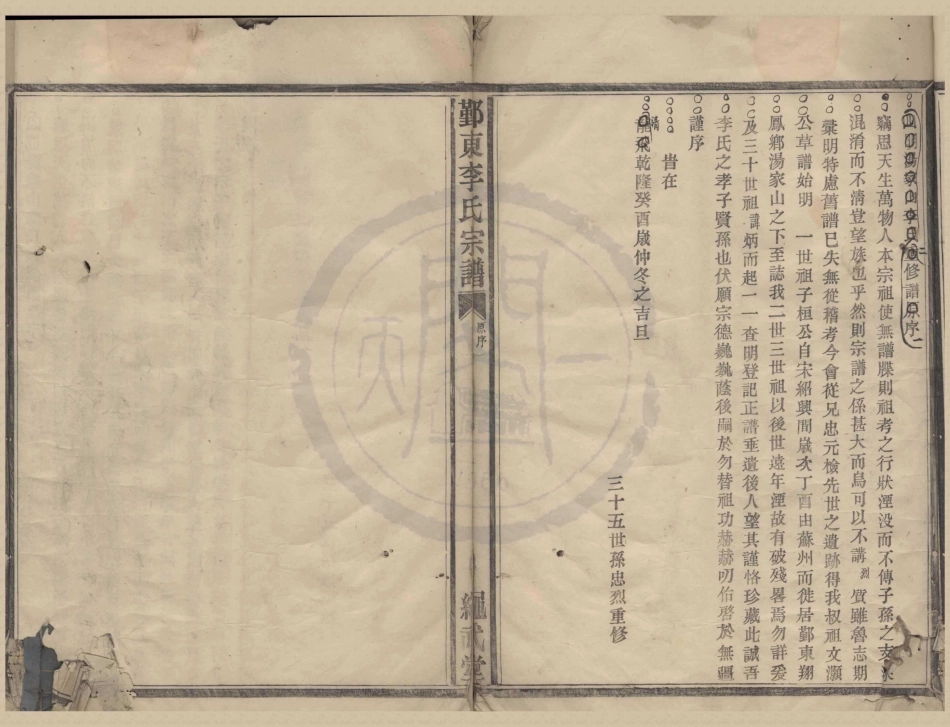 鳳鄉湯家山李氏重修譜原序
二
竊思天生萬物人本宗祖使無譜牒則祖考之行狀湮没而不傳子孫之支派
混淆而不清豈望族也乎然則宗譜之係甚大而烏可以不講烈質雖魯志期
彙明特慮舊譜已失無從稽考今會從兄忠元檢先世之遺跡得我叔祖文灝
公草譜始明　一世祖子桓公自宋紹興間嵗次丁酉由蘇州而徙居鄞東翔
鳳鄉湯家山之下至誌我二世三世祖以後世遠年湮故有破殘畧焉勿詳爰
及三十世祖諱炳而起一一查明登記正譜垂遺後人望其謹恪珍藏此誠吾
李氏之孝子賢孫也伏願宗德巍巍蔭後嗣於勿替祖功赫赫叨佑啓於無疆
謹序
旹在
清
龍飛乾隆癸酉嵗仲冬之吉旦
三十五世孫忠烈重修
鄞東李氏宗譜
原序
繩武堂